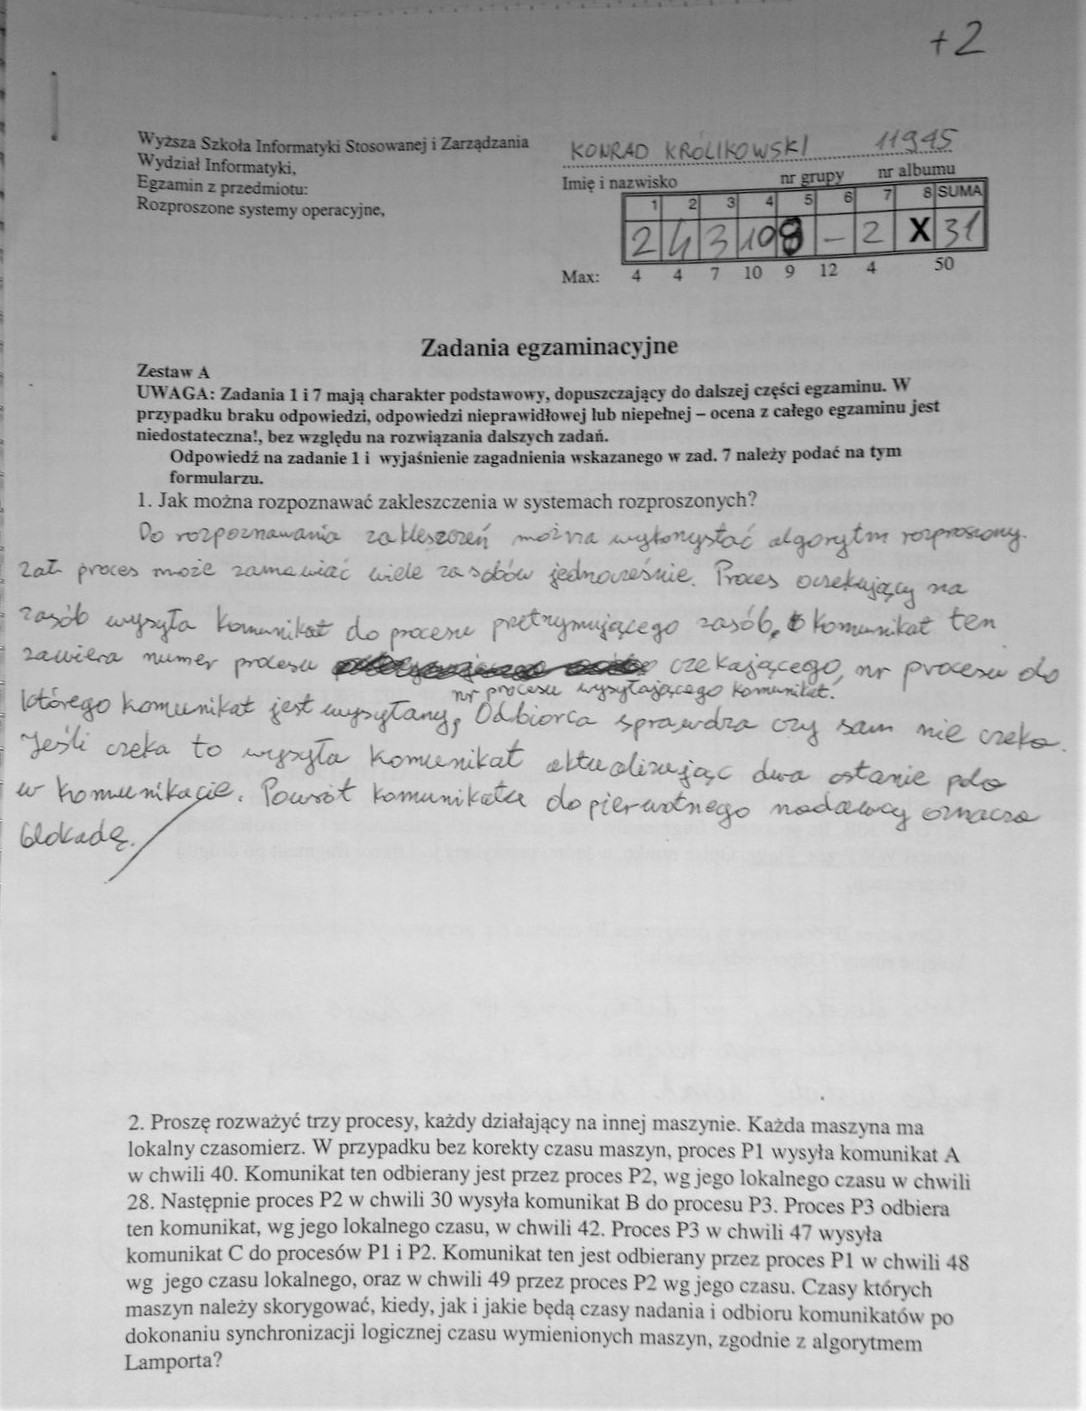 +2
Wyższa Szkoła Informatyki Stosowanej i Zarządzania
Wydział Informatyki,
Egzamin z przedmiotu:
Rozproszone systemy operacyjne,
KONRAD KRÓLIKOWSKI 11945
Imię i nazwisko nr grupy nr albumu
1 2 3 4 5 6 7 8 SUMA
2 4 3 10 8 – 2 X 31
Max: 4 4 7 10 9 12 4 50
Zadania egzaminacyjne
Zestaw A
UWAGA: Zadania 1 i 7 mają charakter podstawowy, dopuszczający do dalszej części egzaminu. W
przypadku braku odpowiedzi, odpowiedzi nieprawidłowej lub niepełnej – ocena z całego egzaminu jest
niedostateczna!, bez względu na rozwiązania dalszych zadań.
Odpowiedź na zadanie 1 i wyjaśnienie zagadnienia wskazanego w zad. 7 należy podać na tym
formularzu.
1. Jak można rozpoznawać zakleszczenia w systemach rozproszonych?
Do rozpoznawania zakleszczeń można wykorzystać algorytm rozproszony.
Zał. proces może zamawiać wiele zasobów jednocześnie. Proces oczekujący na
zasób wysyła komunikat do procesu przetrzymującego zasób, komunikat ten
zawiera numer procesu czekającego, nr procesu do
nr procesu wysyłającego komunikat.
którego komunikat jest wysyłany, Odbiorca sprawdza czy sam nie czeka.
Jeśli czeka to wysyła komunikat aktualizując dwa ostanie pola
w komunikacie. Powrót komunikatu do pierwotnego nadawcy oznacza
blokadę.
2. Proszę rozważyć trzy procesy, każdy działający na innej maszynie. Każda maszyna ma
lokalny czasomierz. W przypadku bez korekty czasu maszyn, proces P1 wysyła komunikat A
w chwili 40. Komunikat ten odbierany jest przez proces P2, wg jego lokalnego czasu w chwili
28. Następnie proces P2 w chwili 30 wysyła komunikat B do procesu P3. Proces P3 odbiera
ten komunikat, wg jego lokalnego czasu, w chwili 42. Proces P3 w chwili 47 wysyła
komunikat C do procesów P1 i P2. Komunikat ten jest odbierany przez proces P1 w chwili 48
wg jego czasu lokalnego, oraz w chwili 49 przez proces P2 wg jego czasu. Czasy których
maszyn należy skorygować, kiedy, jak i jakie będą czasy nadania i odbioru komunikatów po
dokonaniu synchronizacji logicznej czasu wymienionych maszyn, zgodnie z algorytmem
Lamporta?